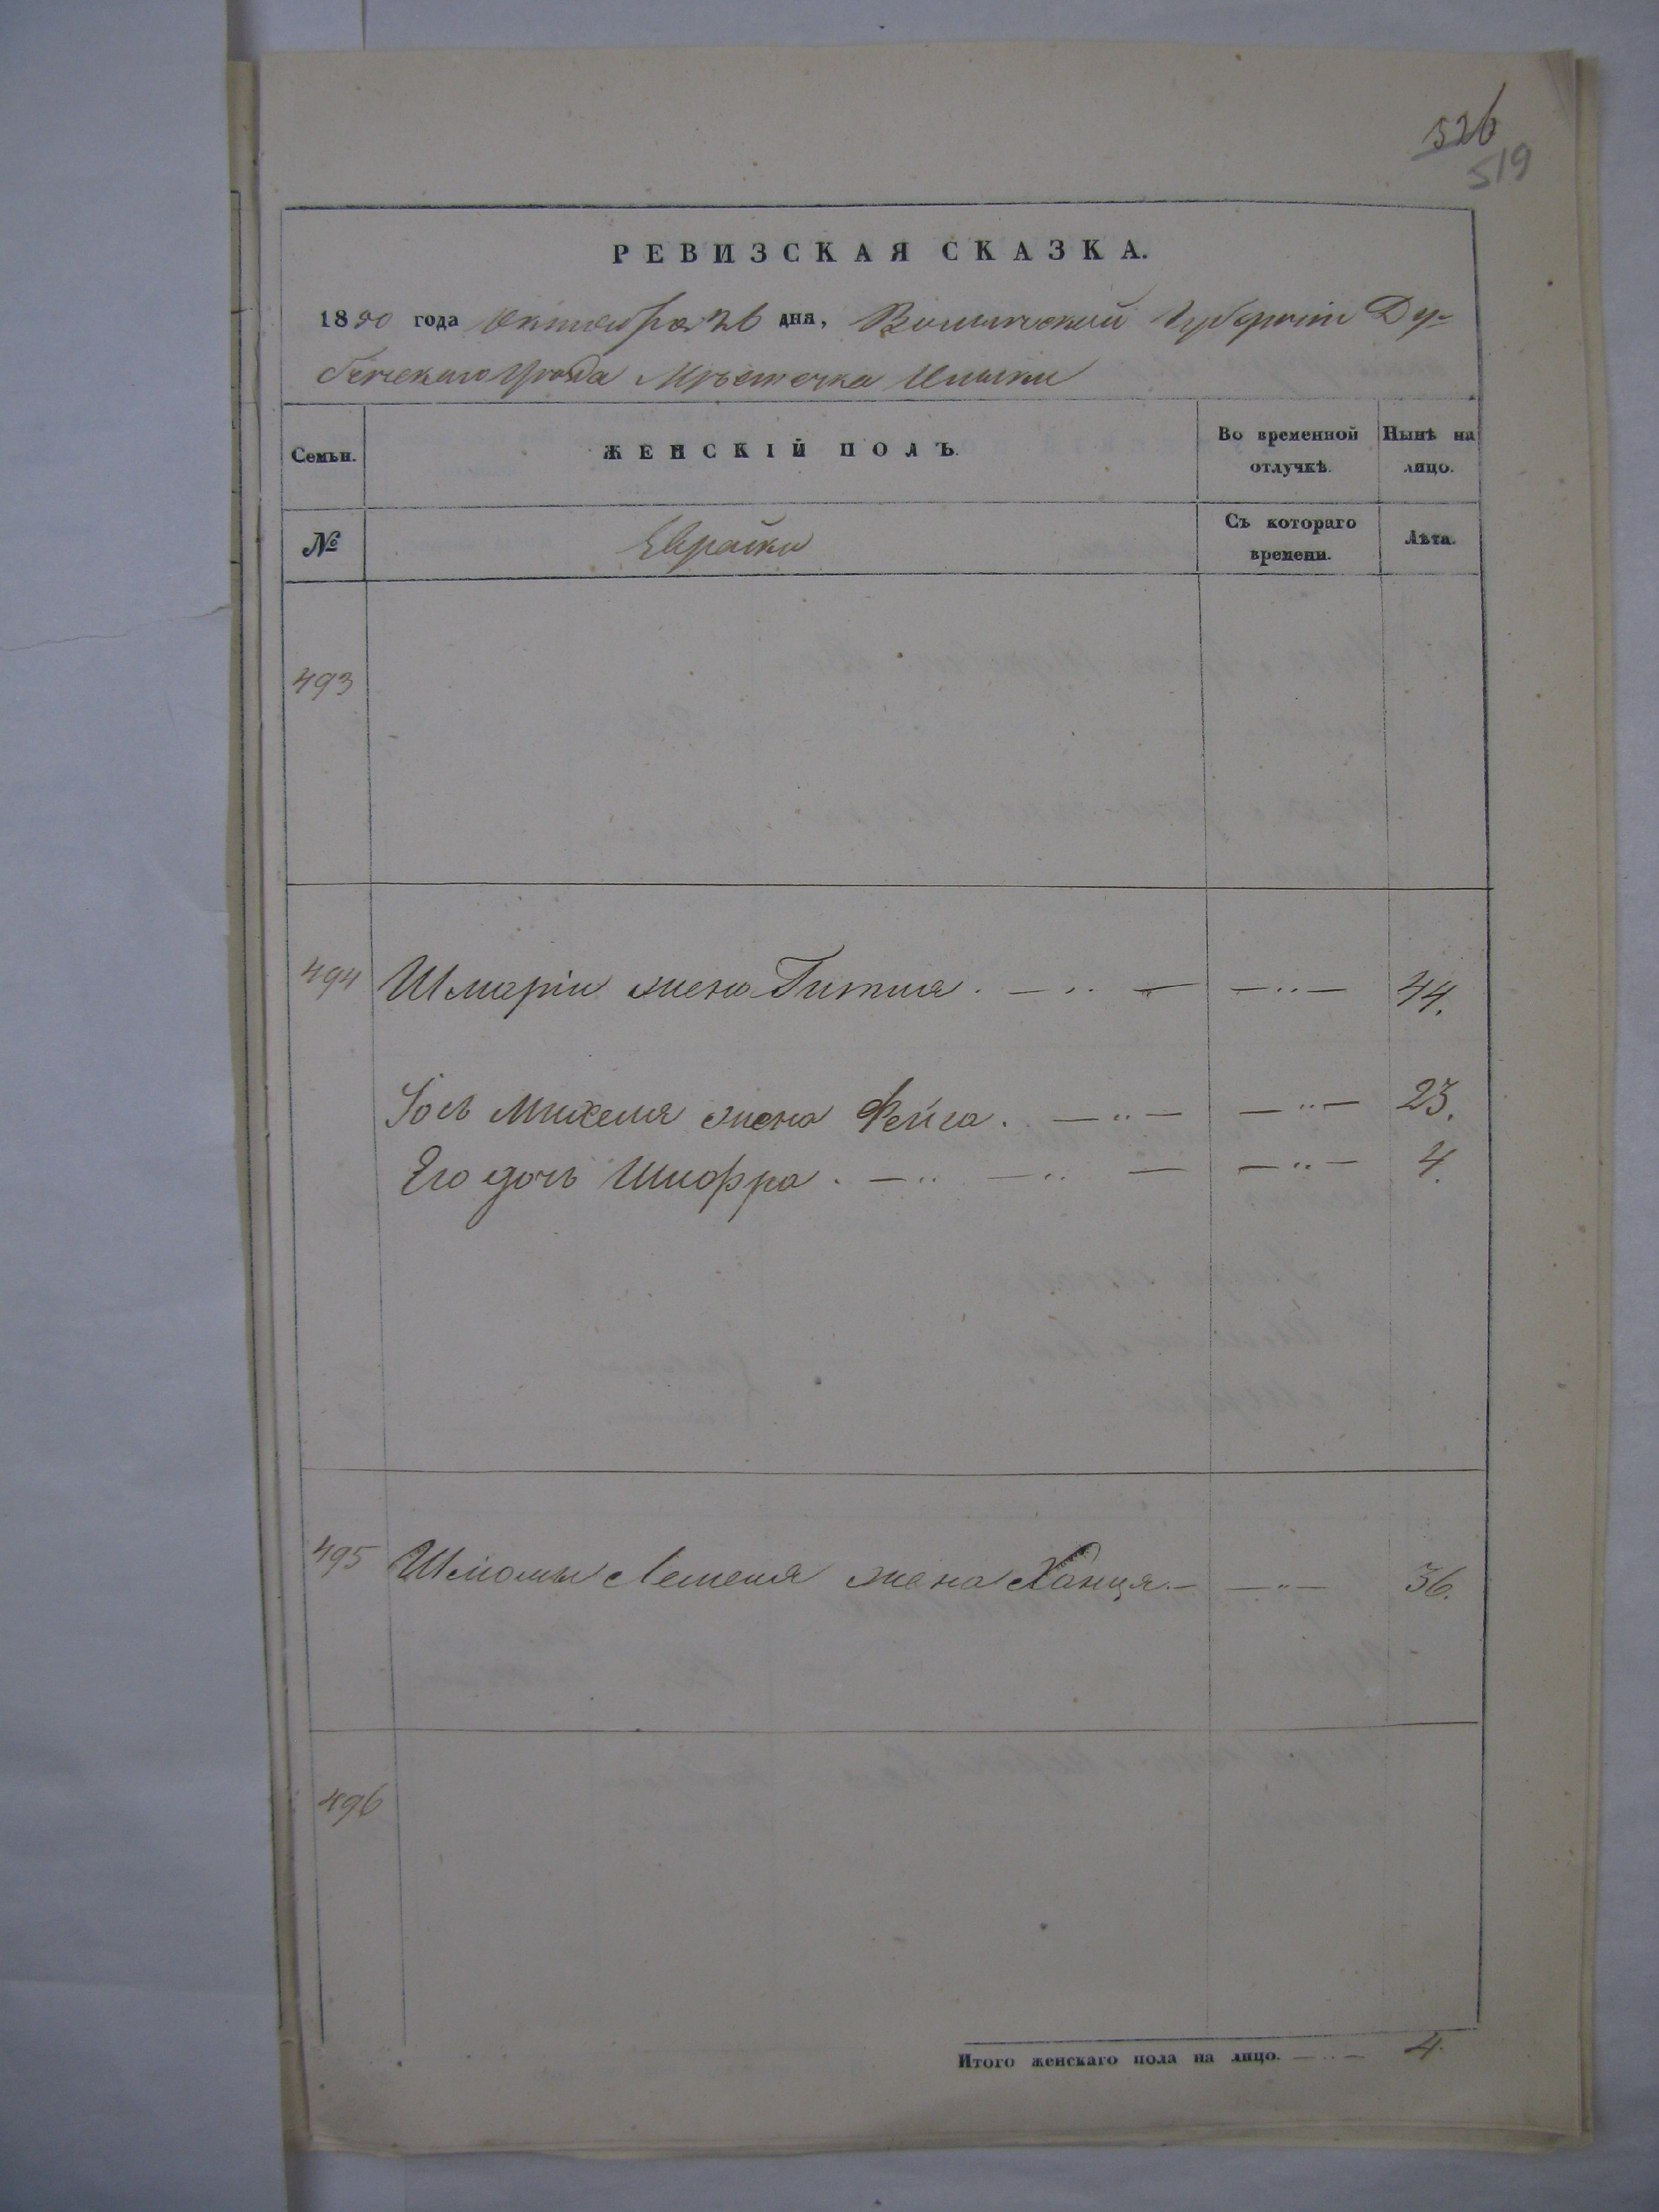 326
519
РЕВИЗСКАЯ СКАЗКА.
1850 года Октября 26 дня, Волынской Губерніи Ду-
бенскаго Уѣзда Мѣстечка
Семьи. ЖЕНСКІЙ ПОЛЪ. Во временной отлучкѣ. Нынѣ на лицо.
№ Еврейки Съ котораго времени. Лѣта.
493
494 Шмаріи жена Гитля . — ·· — — ·· — 44.
Іось Михеля жена Фейга . — ·· — — ·· — 23.
Его дочь Шифра . — ·· — ·· — — ·· — 4.
495 Шліомы жена Ханця . — — ·· — 36.
496
Итого женскаго пола на лицо. — ·· — 4.